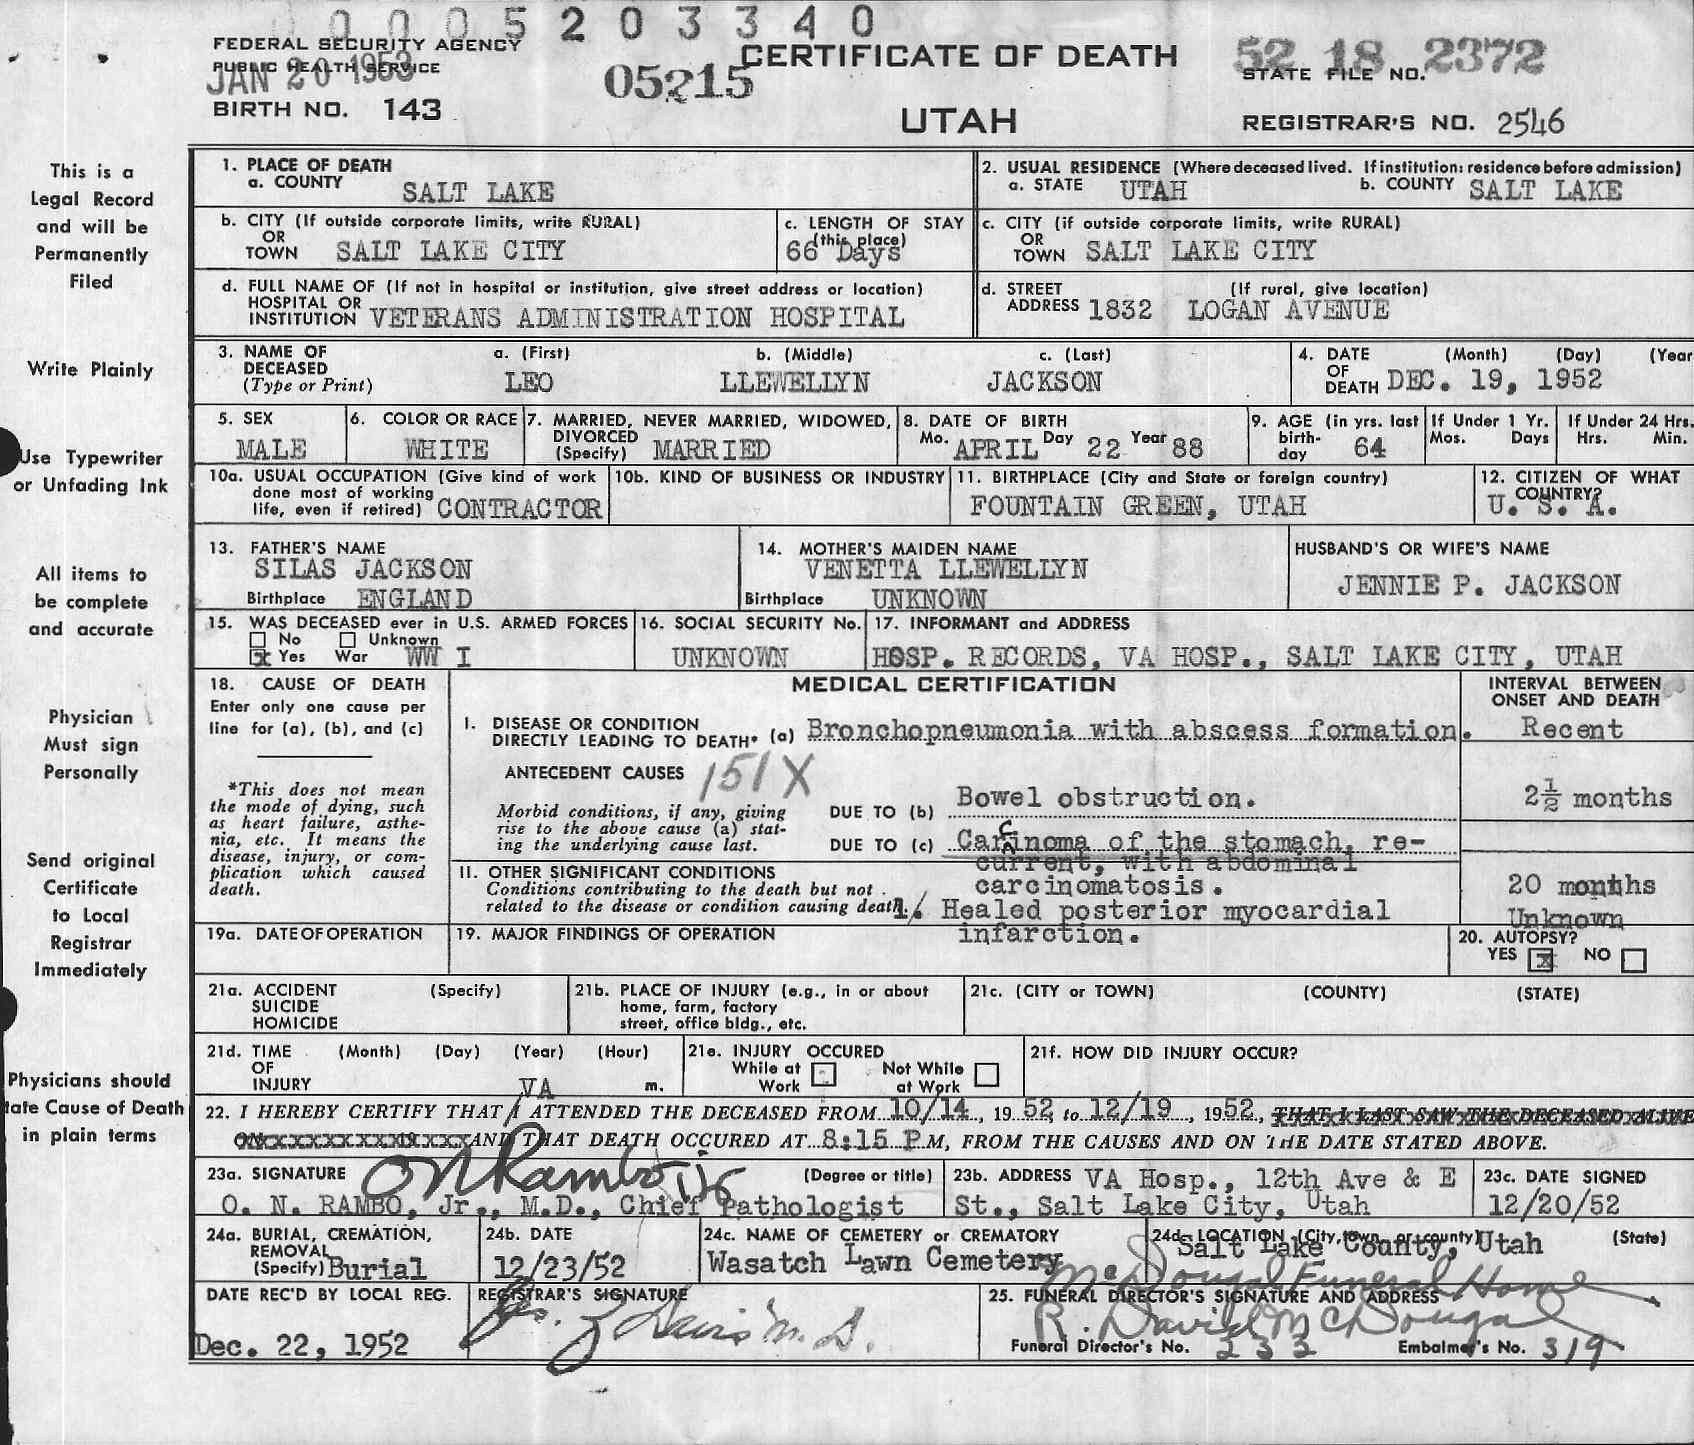 0005203340
FEDERAL SECURITY AGENCY
PUBLIC HEALTH SERVICE
JAN 20 1953
BIRTH NO. 143
05215
CERTIFICATE OF DEATH
UTAH
52 18 2372
STATE FILE NO.
REGISTRAR'S NO. 2546
This is a
Legal Record
and will be
Permanently
Filed
Write Plainly
Use Typewriter
or Unfading Ink
All items to
be complete
and accurate
Physician
Must sign
Personally
Send original
Certificate
to Local
Registrar
Immediately
Physicians should
tate Cause of Death
in plain terms
1. PLACE OF DEATH
a. COUNTY SALT LAKE
2. USUAL RESIDENCE (Where deceased lived. If institution: residence before admission)
a. STATE UTAH b. COUNTY SALT LAKE
b. CITY (If outside corporate limits, write RURAL)
OR
TOWN SALT LAKE CITY
c. LENGTH OF STAY
(this place)
66 Days
c. CITY (if outside corporate limits, write RURAL)
OR
TOWN SALT LAKE CITY
d. FULL NAME OF (If not in hospital or institution, give street address or location)
HOSPITAL OR
INSTITUTION VETERANS ADMINISTRATION HOSPITAL
d. STREET (If rural, give location)
ADDRESS 1832 LOGAN AVENUE
3. NAME OF a. (First) b. (Middle) c. (Last)
DECEASED
(Type or Print) LEO LLEWELLYN JACKSON
4. DATE (Month) (Day) (Year
OF
DEATH DEC. 19, 1952
5. SEX
MALE
6. COLOR OR RACE
WHITE
7. MARRIED, NEVER MARRIED, WIDOWED,
DIVORCED
(Specify) MARRIED
8. DATE OF BIRTH
Mo. APRIL Day 22 Year 88
9. AGE (in yrs. last
birth-
day 64
If Under 1 Yr.
Mos. Days
If Under 24 Hrs.
Hrs. Min.
10a. USUAL OCCUPATION (Give kind of work
done most of working
life, even if retired) CONTRACTOR
10b. KIND OF BUSINESS OR INDUSTRY
11. BIRTHPLACE (City and State or foreign country)
FOUNTAIN GREEN, UTAH
12. CITIZEN OF WHAT
COUNTRY?
U. S. A.
13. FATHER'S NAME
SILAS JACKSON
Birthplace ENGLAND
14. MOTHER'S MAIDEN NAME
VENETTA LLEWELLYN
Birthplace UNKNOWN
HUSBAND'S OR WIFE'S NAME
JENNIE P. JACKSON
15. WAS DECEASED ever in U.S. ARMED FORCES
No Unknown
x Yes War WW I
16. SOCIAL SECURITY No.
UNKNOWN
17. INFORMANT and ADDRESS
HOSP. RECORDS, VA HOSP., SALT LAKE CITY, UTAH
18. CAUSE OF DEATH
Enter only one cause per
line for (a), (b), and (c)
*This does not mean
the mode of dying, such
as heart failure, asthe-
nia, etc. It means the
disease, injury, or com-
plication which caused
death.
MEDICAL CERTIFICATION
INTERVAL BETWEEN
ONSET AND DEATH
I. DISEASE OR CONDITION
DIRECTLY LEADING TO DEATH* (a) Bronchopneumonia with abscess formation. Recent
ANTECEDENT CAUSES 151X
Morbid conditions, if any, giving
rise to the above cause (a) stat-
ing the underlying cause last.
DUE TO (b) Bowel obstruction. 2½ months
DUE TO (c) Carcinoma of the stomach, re-
current, with abdominal
carcinomatosis. 20 months
II. OTHER SIGNIFICANT CONDITIONS
Conditions contributing to the death but not
related to the disease or condition causing death.
1. Healed posterior myocardial Unknown
infarction.
19a. DATE OF OPERATION
19. MAJOR FINDINGS OF OPERATION
20. AUTOPSY?
YES x NO
21a. ACCIDENT (Specify)
SUICIDE
HOMICIDE
21b. PLACE OF INJURY (e.g., in or about
home, farm, factory
street, office bldg., etc.
21c. (CITY or TOWN) (COUNTY) (STATE)
21d. TIME (Month) (Day) (Year) (Hour)
OF
INJURY m.
21e. INJURY OCCURED
While at Work Not While at Work
21f. HOW DID INJURY OCCUR?
VA
22. I HEREBY CERTIFY THAT I ATTENDED THE DECEASED FROM 10/14, 1952, to 12/19, 1952, THAT I LAST SAW THE DECEASED ALIVE
ON xxxxxxxxx 19 xxxx AND THAT DEATH OCCURED AT 8:15 P.M, FROM THE CAUSES AND ON THE DATE STATED ABOVE.
23a. SIGNATURE O N Rambo Jr (Degree or title)
O. N. RAMBO, Jr., M.D., Chief Pathologist
23b. ADDRESS VA Hosp., 12th Ave & E
St., Salt Lake City, Utah
23c. DATE SIGNED
12/20/52
24a. BURIAL, CREMATION,
REMOVAL
(Specify) Burial
24b. DATE
12/23/52
24c. NAME OF CEMETERY or CREMATORY
Wasatch Lawn Cemetery
24d. LOCATION (City, town, or county) (State)
Salt Lake County, Utah
DATE REC'D BY LOCAL REG.
Dec. 22, 1952
REGISTRAR'S SIGNATURE
Davis M. D.
McDougal Funeral Home
25. FUNERAL DIRECTOR'S SIGNATURE AND ADDRESS
R. David McDougal
Funeral Director's No. 232 Embalmer's No. 319